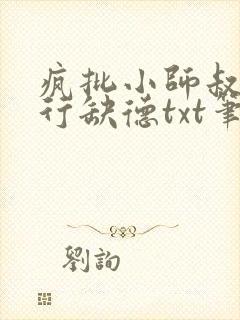 疯批小師叔
行缺德txt筆
劉詢